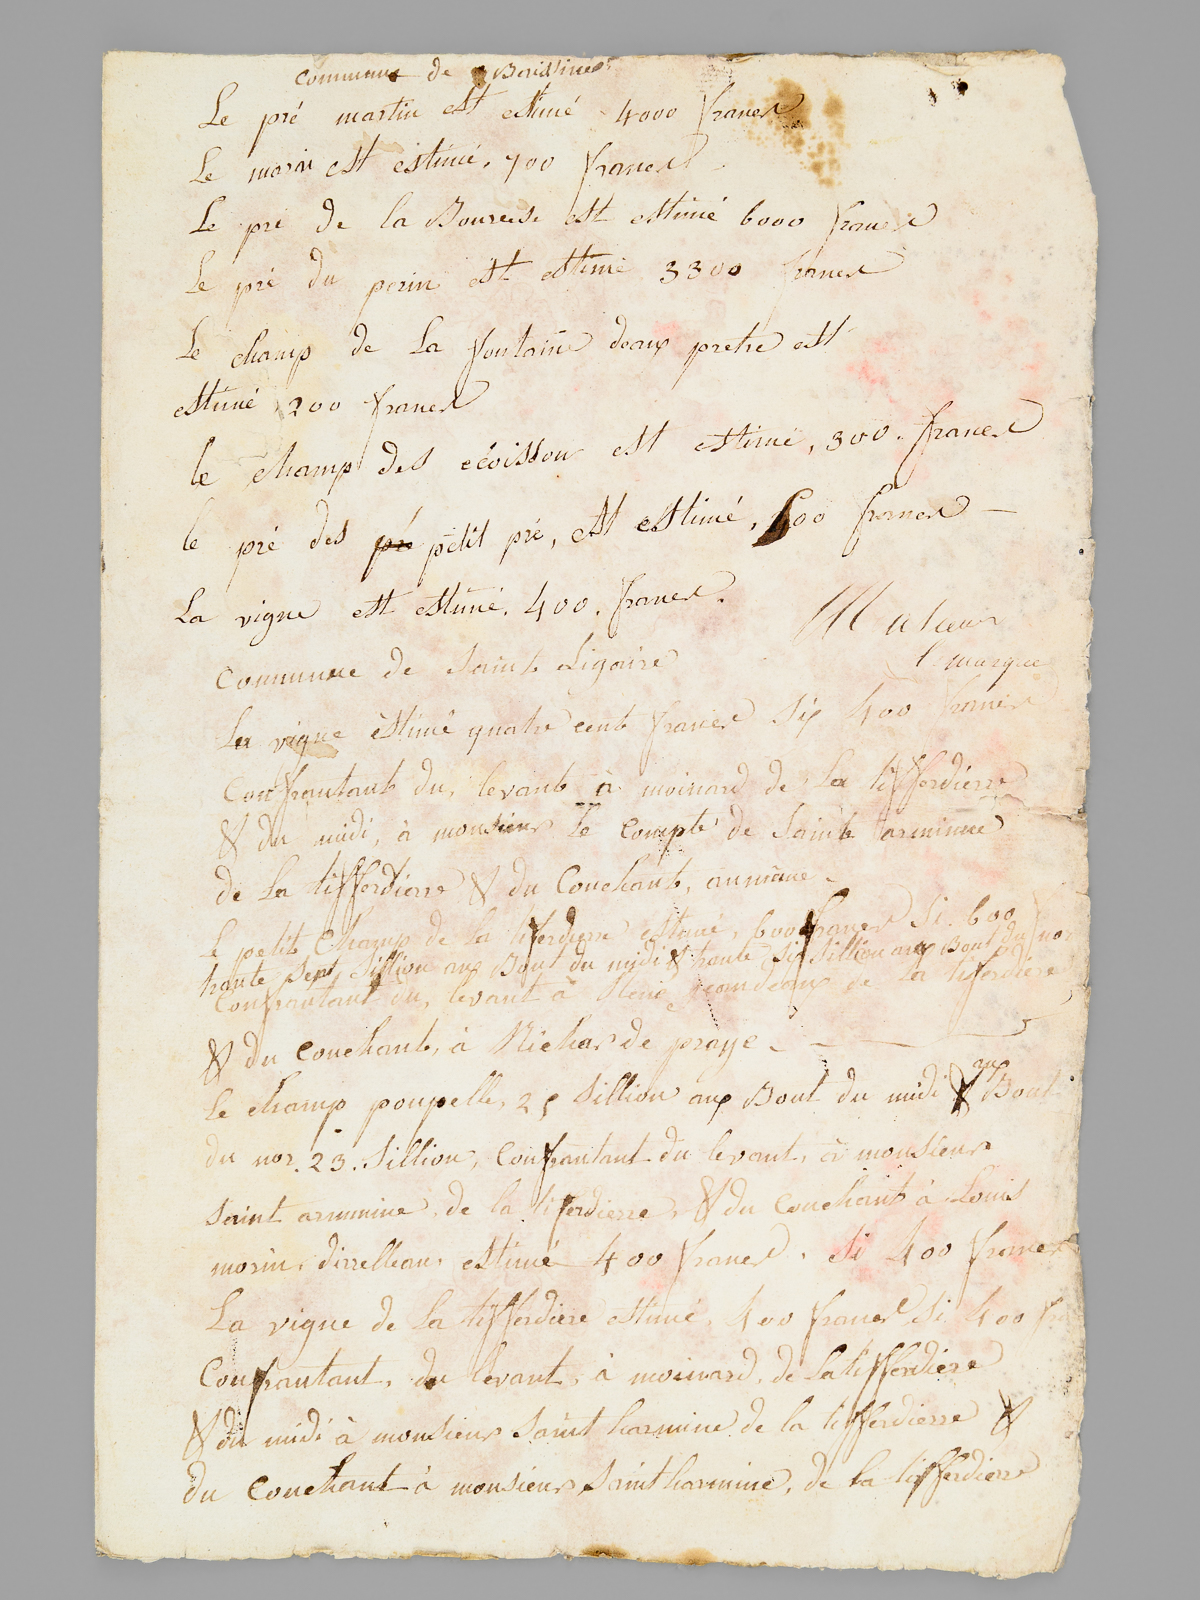 Commune de
Le pré martin est estimé 4000 francs
Le marai est estimé, 700 francs
Le pré de la Bourese est estimé 6000 francs
Le pré du perin est estimé 3300 francs
Le champ de La fontaine deaux pretre est
estimé 200 francs
le champ des ecoisson est estimé, 300. francs
le pré des pré petit pré, est estimé, 600 francs —
La vigne est estimé. 400. francs.
Commune de Saint Ligaire
La vigne estimé quatre cent francs Si 400 francs
Confrantant du, levant à moinard de La tifferdierre
& du midi, à monsieur Le Compte de Saint arminne
de La tifferdierre & du Couchant, aumême -
Le petit Champ de la tiferdierre estimé, 600 francs Si. 600
trante Sept Sillion aux Bout du midi & trante Six Sillion aux Bout du nor
Confrantant du, levant à de La tiferdiere
& du Couchant, à Richar de praye - - —
Le champ poupelle, 25 Sillion aux Bout du midi & aux Bout
du nor. 23. Sillion, Confrantant du levant, à monsieur
Saint arminine, de la tiferdierre, & du Couchant à Louis
morin, estimé 400 francs. Si 400 francs
La vigne de La tifferdiere estimé, 400 francs Si 400
Confrantant, du levant, à moinard, de La tifferdiere
& du midi à monsieur Saint harmine de la tifferdierre &
du Couchant à monsieur Saint harmine, de la tifferdierre